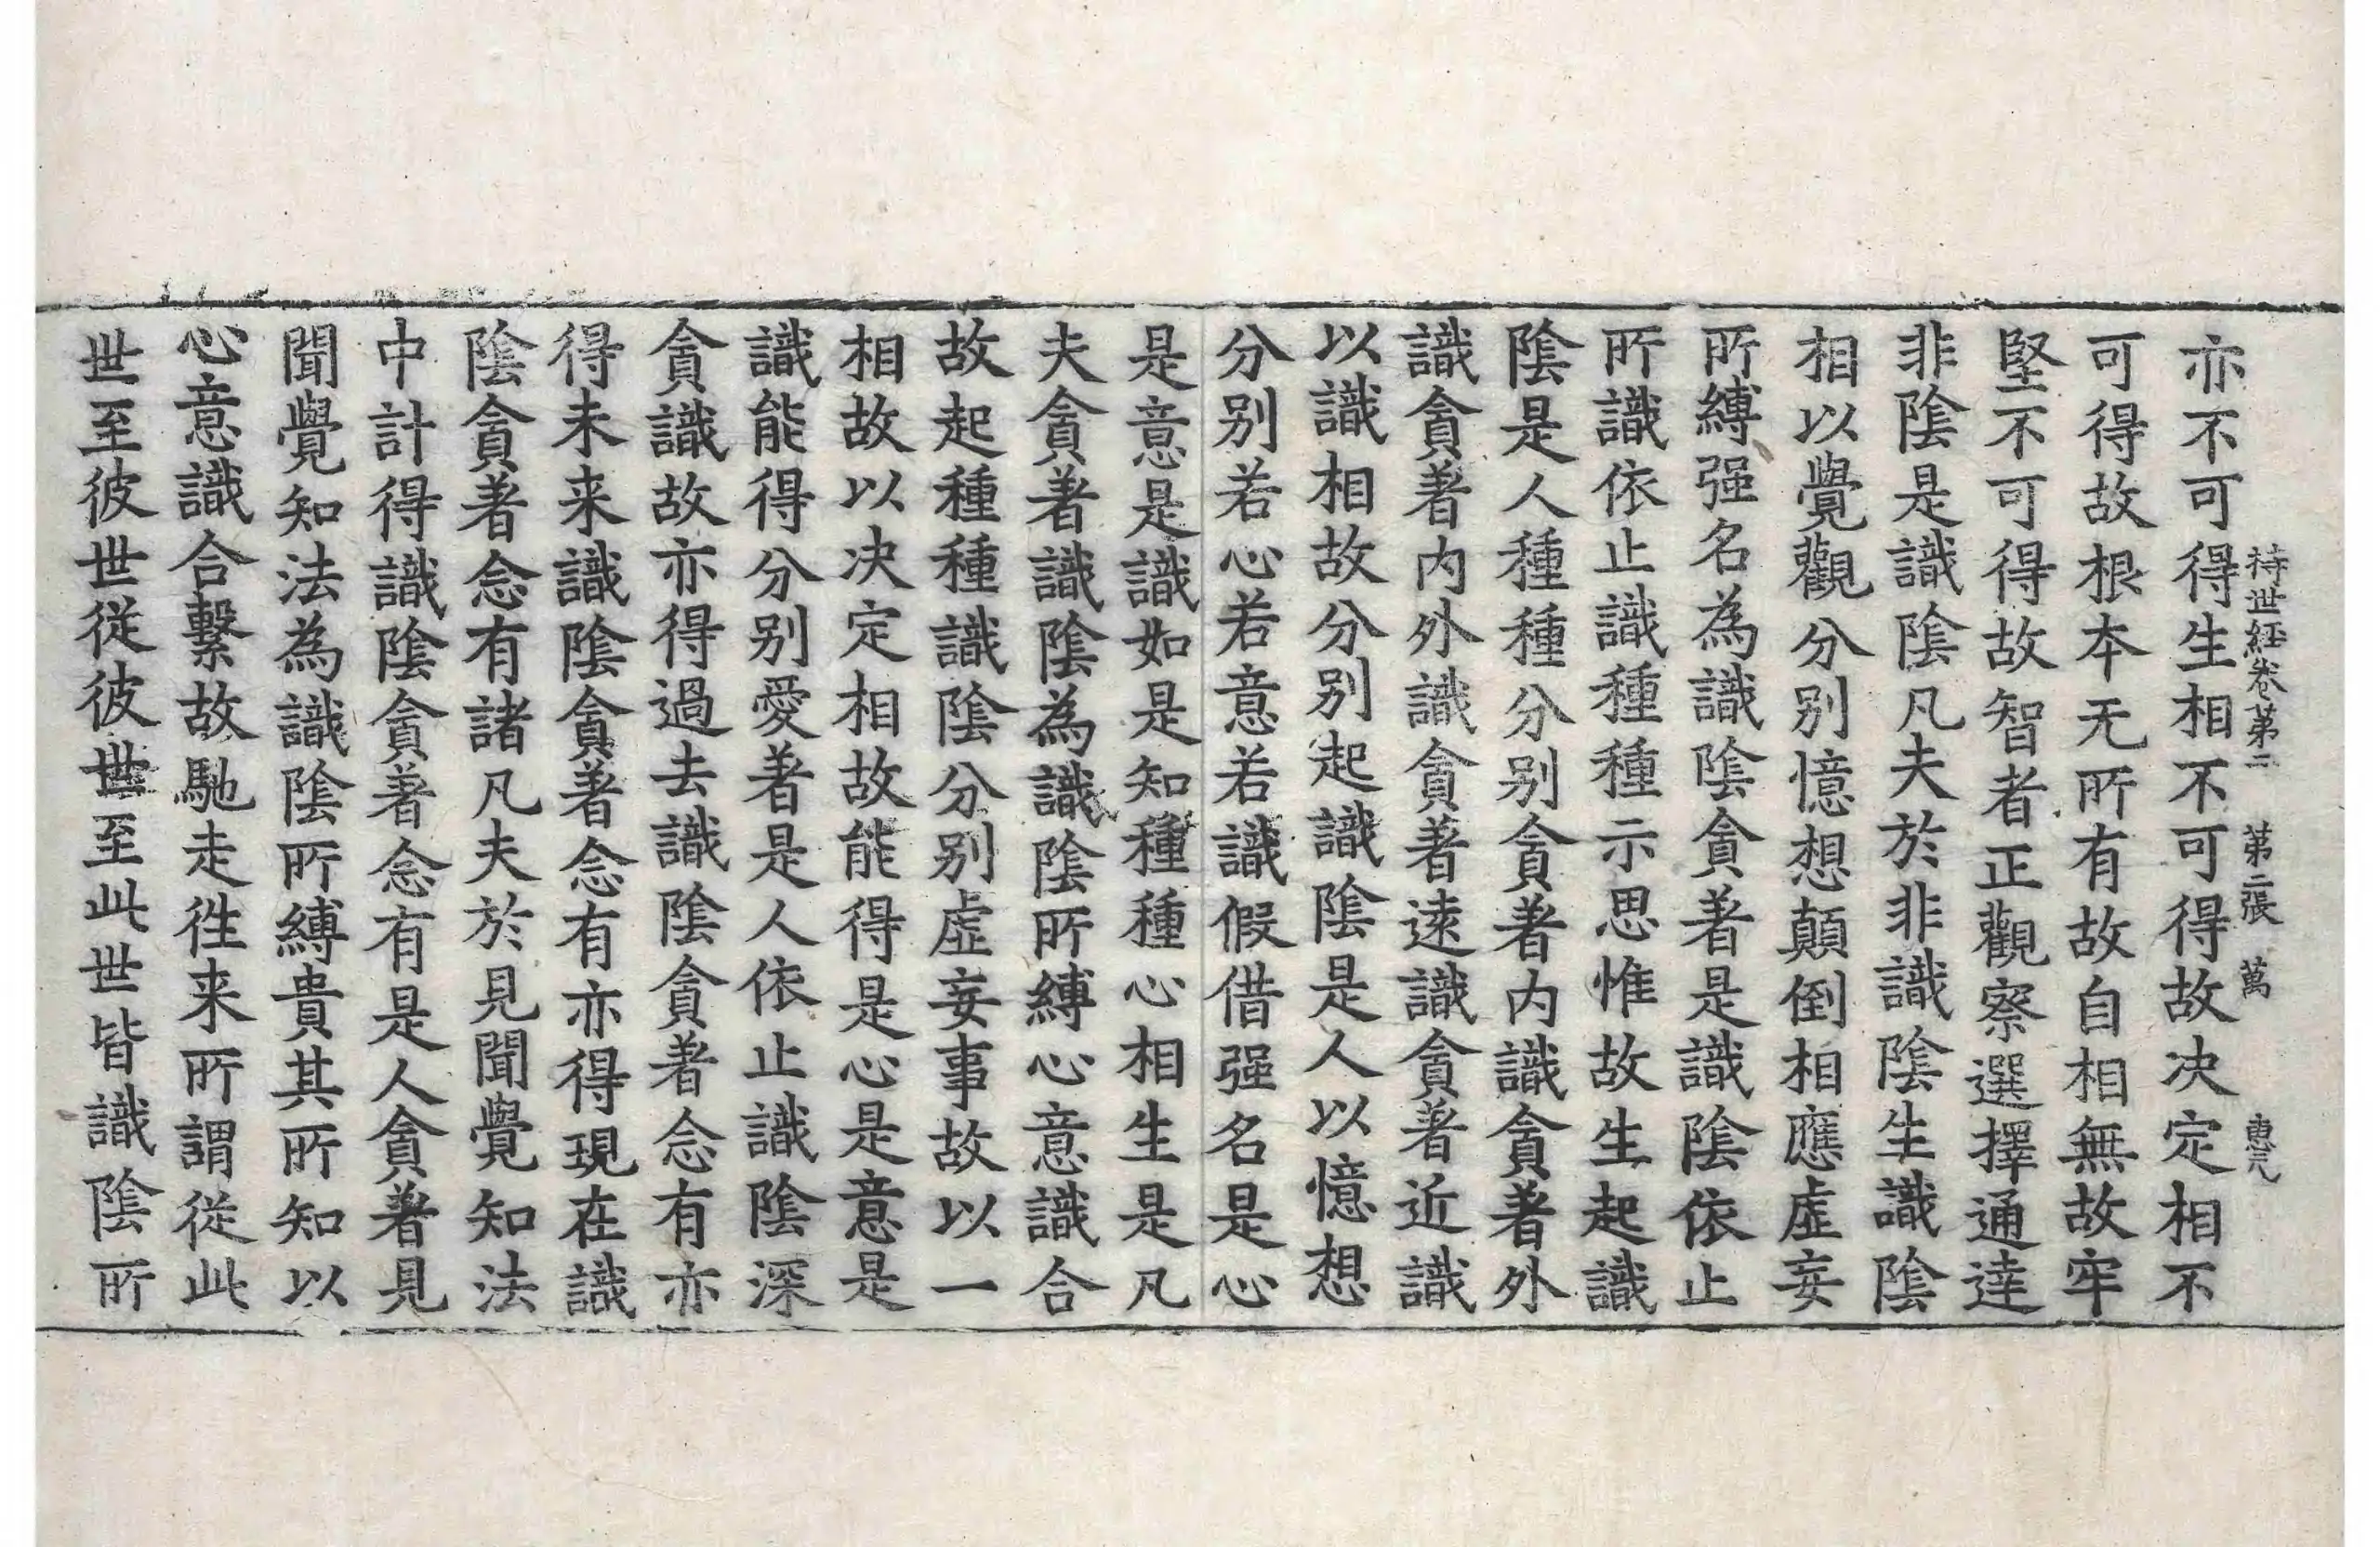 持世經卷第二 第二張 萬 惠元
亦不可得生相不可得故决定相不
可得故根本无所有故自相無故牢
堅不可得故智者正觀察選擇通達
非陰是識陰凡夫於非識陰生識陰
相以覺觀分别憶想顛倒相應虛妄
所縛强名為識陰貪著是識陰依止
所識依止識種種示思惟故生起識
陰是人種種分别貪著内識貪著外
識貪著内外識貪著遠識貪著近識
以識相故分别起識陰是人以憶想
分别若心若意若識假借强名是心
是意是識如是知種種心相生是凡
夫貪著識陰為識陰所縛心意識合
故起種種識陰分别虛妄事故以一
相故以决定相故能得是心是意是
識能得分别愛著是人依止識陰深
貪識故亦得過去識陰貪著念有亦
得未来識陰貪著念有亦得現在識
陰貪著念有諸凡夫於見聞覺知法
中計得識陰貪著念有是人貪著見
聞覺知法為識陰所縛貴其所知以
心意識合繫故馳走徃来所謂從此
世至彼世從彼世至此世皆識陰所